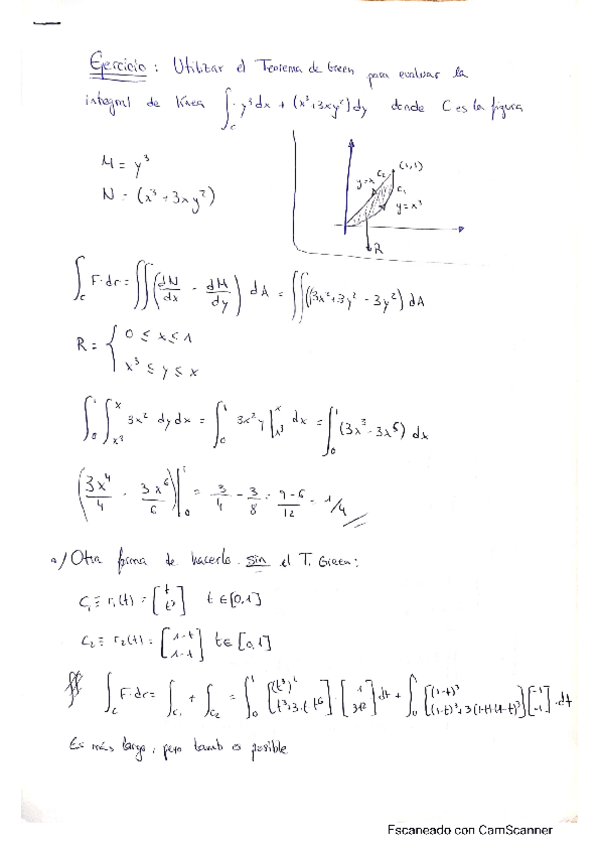 Ejercicio : Utilizar el Teorema de Green para evaluar la
integral de línea ∫_C y³dx + (x³+3xy²)dy donde C es la figura
M = y³
N = (x³+3xy²)
y=x C₂ (1,1)
C₁
y=x³
R
∫_C F·dr = ∬(dN/dx - dM/dy) dA = ∬(3x²+3y² - 3y²) dA
R = { 0 ≤ x ≤ 1
x³ ≤ y ≤ x
∫₀¹ ∫_{x³}^{x} 3x² dy dx = ∫₀¹ 3x²y |_{x³}^{x} dx = ∫₀¹ (3x³-3x⁵) dx
(3x⁴/4 - 3x⁶/6)|₀¹ = 3/4 - 3/8 = 9-6/12 = 1/4
a/ Otra forma de hacerlo sin el T. Green:
C₁ ≡ r₁(t) = [t t³] t∈[0,1]
C₂ ≡ r₂(t) = [1-t 1-t] t∈[0,1]
∫_C F·dr = ∫_{C₁} + ∫_{C₂} = ∫₀¹ [ t³+3·t·t⁶] [1 ] dt + ∫₀¹ [(1-t)³ (1-t)³+3(1-t)(1-t)²] [-1 -1] · dt
Es más largo, pero tamb es posible
Escaneado con CamScanner